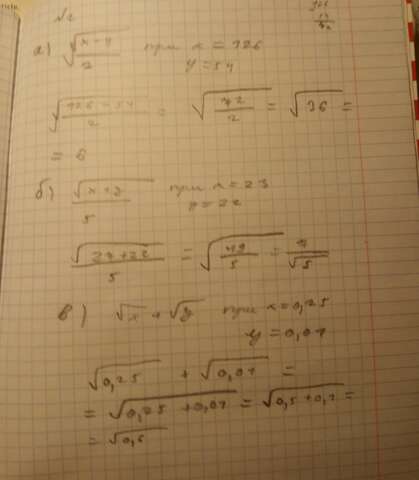 №2
а) √((x-y)/2) при x = 126
y = 54
√((126-54)/2) = √(72/2) = √36 =
= 6
б) √(x+y)/5 при x = 27
y = 22
√(27+22)/5 = √(49/5) = 7/√5
в) √x + √y при x = 0,25
y = 0,01
√0,25 + √0,01 =
= √(0,25 + 0,01) = √(0,5 + 0,1) =
= √0,6